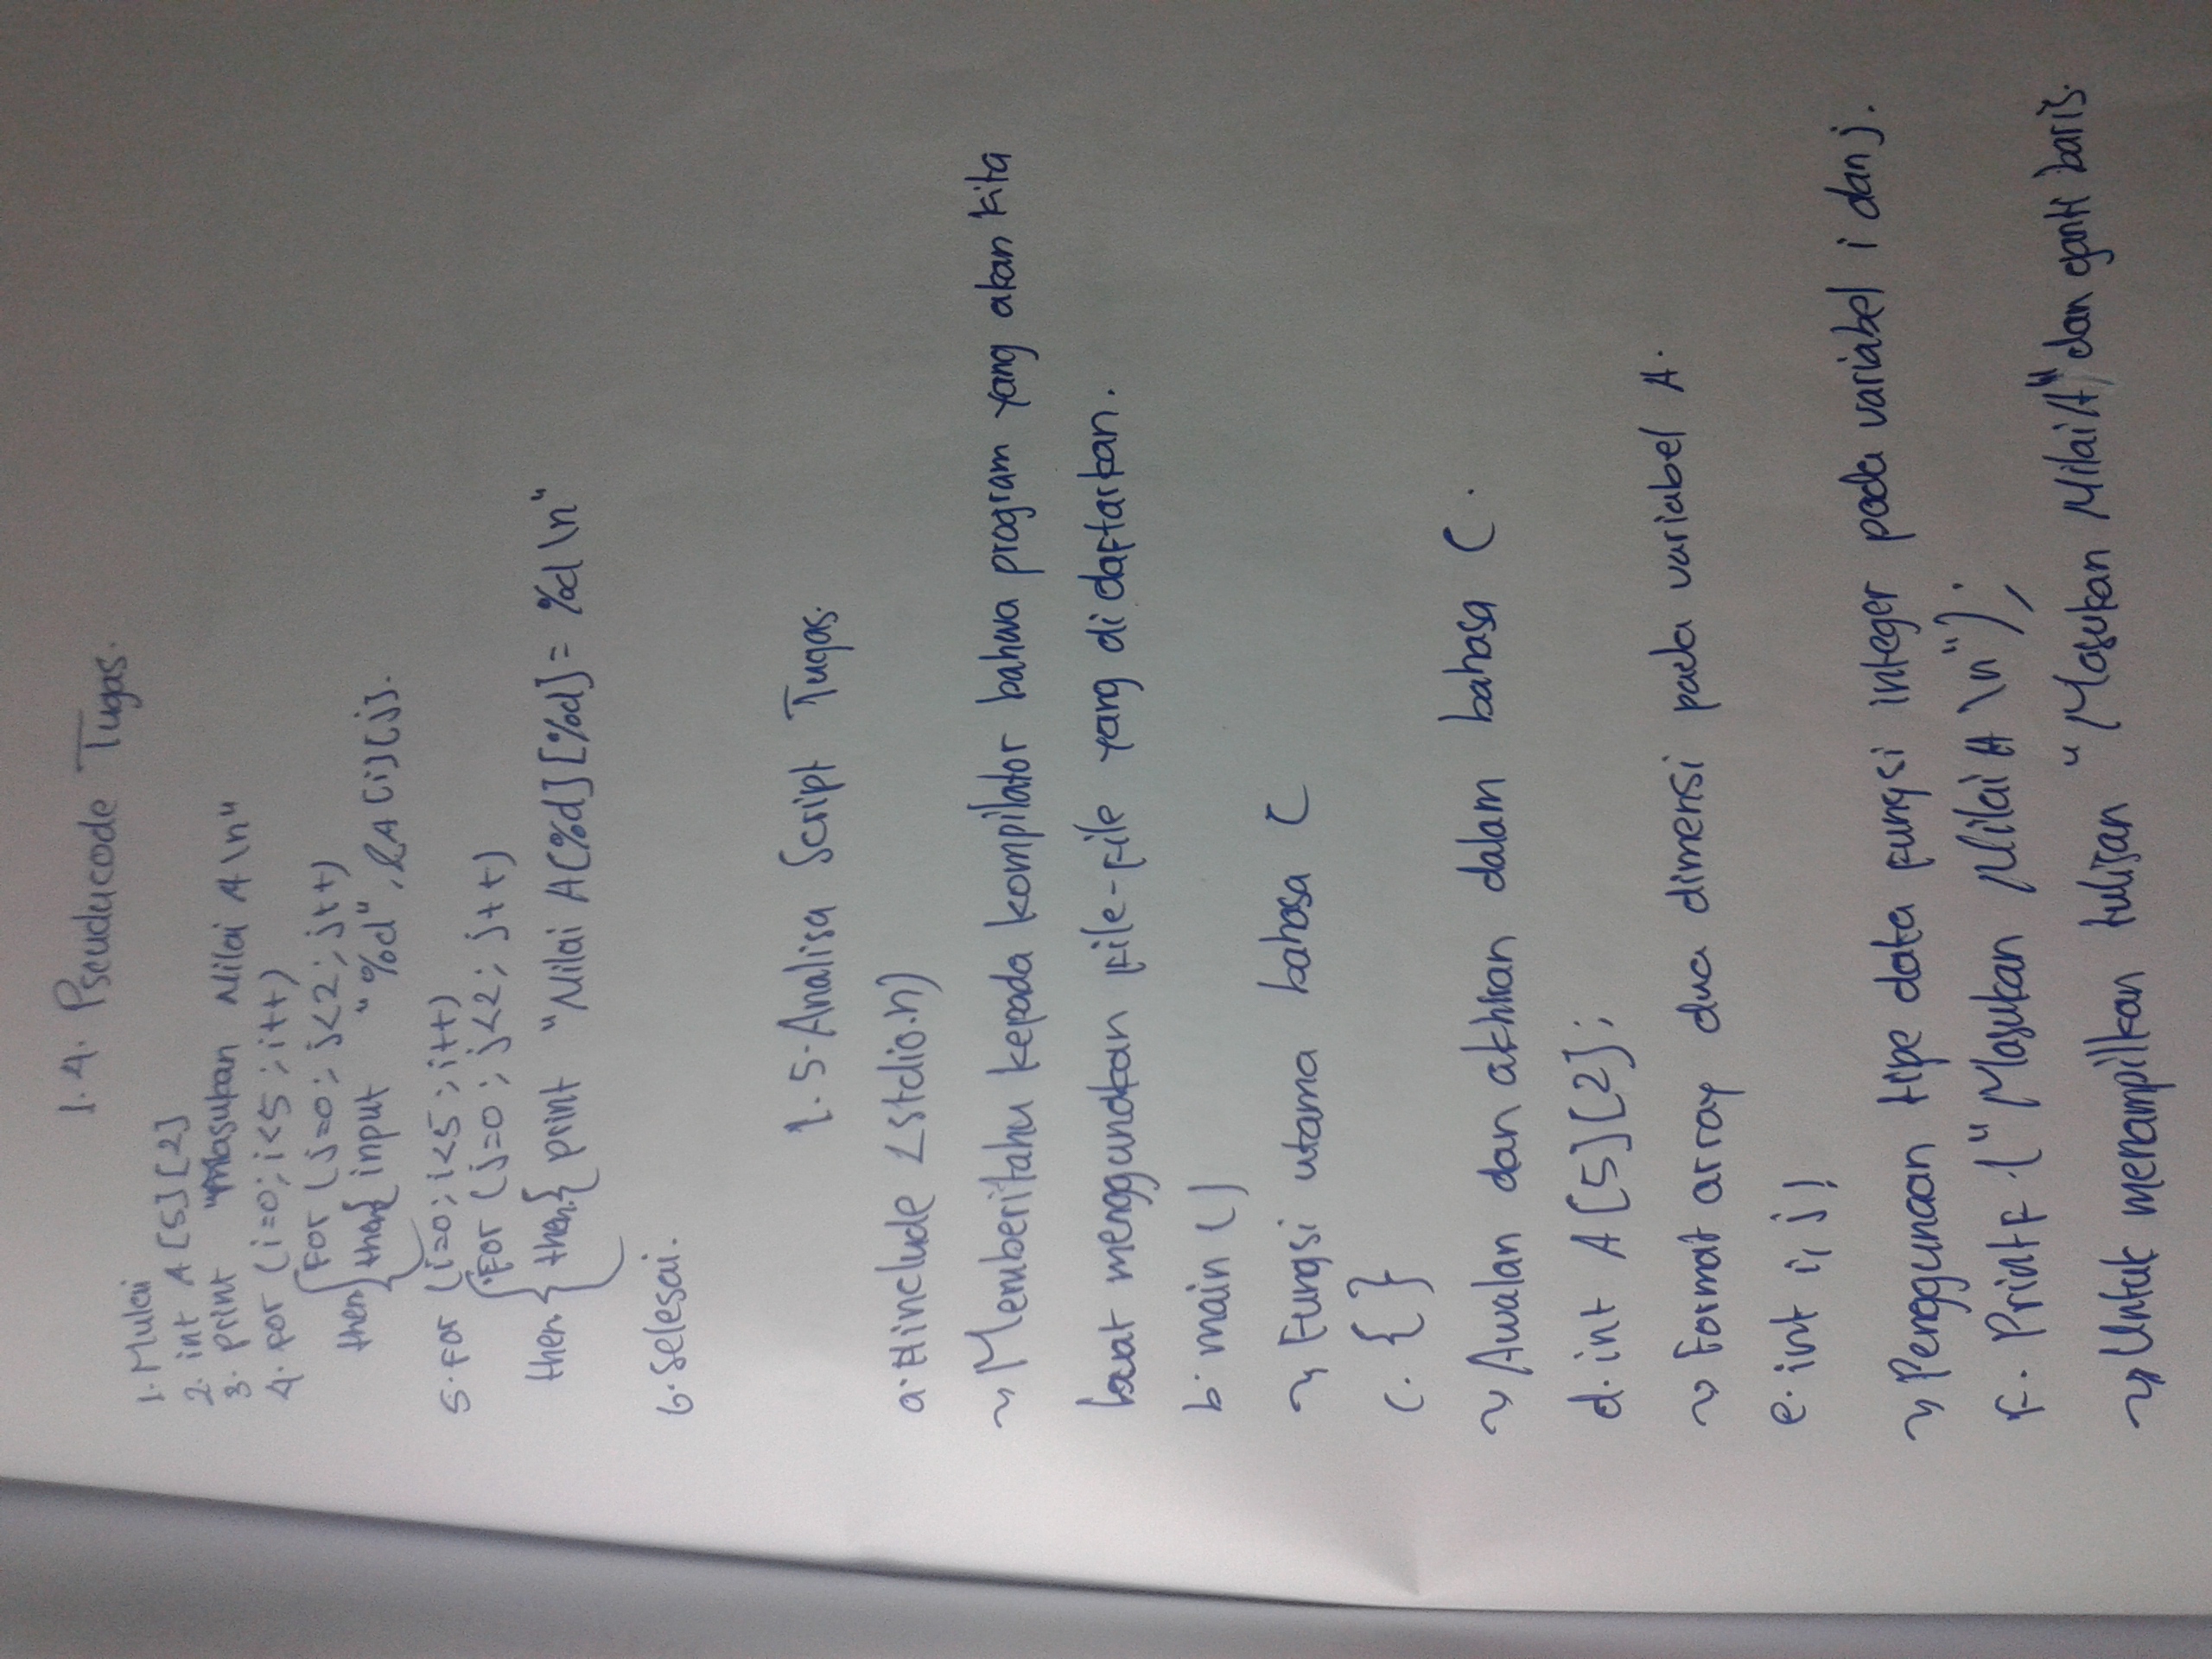 1.4. Pseuducode Tugas.
1. Mulai
2. int A[5][2]
3. print "Masukan Nilai A\n"
4. for (i=0; i<5; i++)
for (j=0; j<2; j++)
then then{ input "%d", &A[i][j].
5. for (i=0; i<5; i++)
for (j=0; j<2; j++)
then { then{ print "Nilai A[%d][%d] = %d\n"
6. Selesai.
1.5. Analisa Script Tugas.
a. #include <stdio.h)
~ Memberitahu kepada kompilator bahwa program yang akan kita
buat menggunakan file-file yang di daftarkan.
b. main ()
~ Fungsi utama bahasa C
c. { }
~ Awalan dan akhiran dalam bahasa C.
d. int A[5][2];
~ Format array dua dimensi pada variabel A.
e. int i, j;
~ Penggunaan tipe data fungsi integer pada variabel i dan j.
F. Printf ("Masukan Nilai A \n");
~ Untuk menampilkan tulisan "Masukan Nilai A" dan ganti baris.